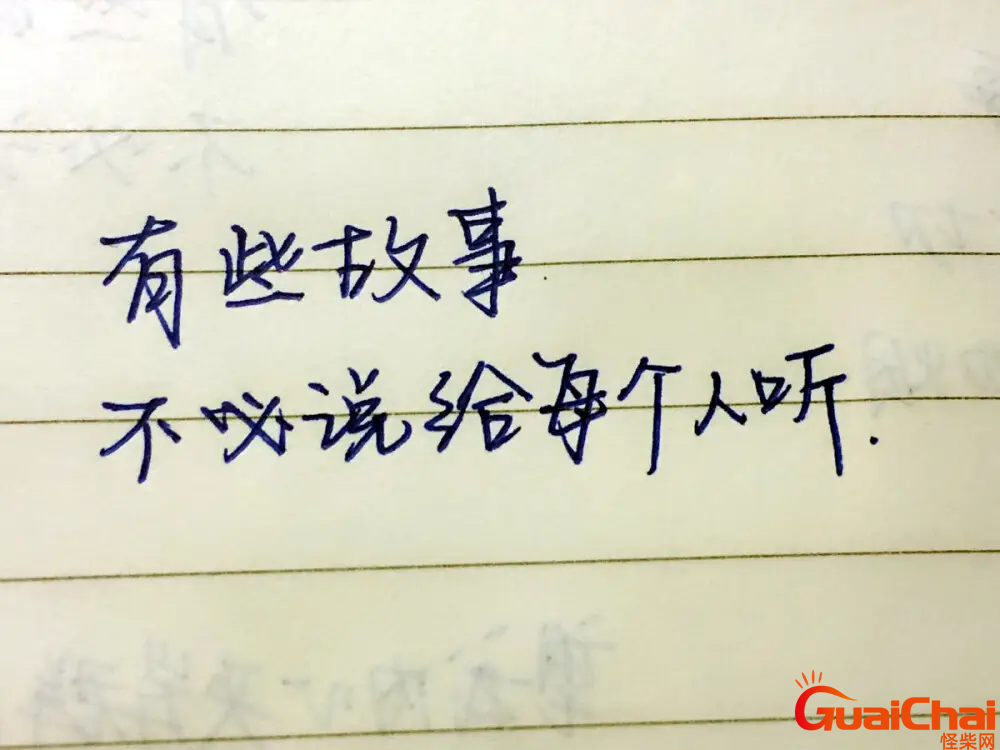 有些故事
不必说给每个人听.
GuaiChai
怪柴网